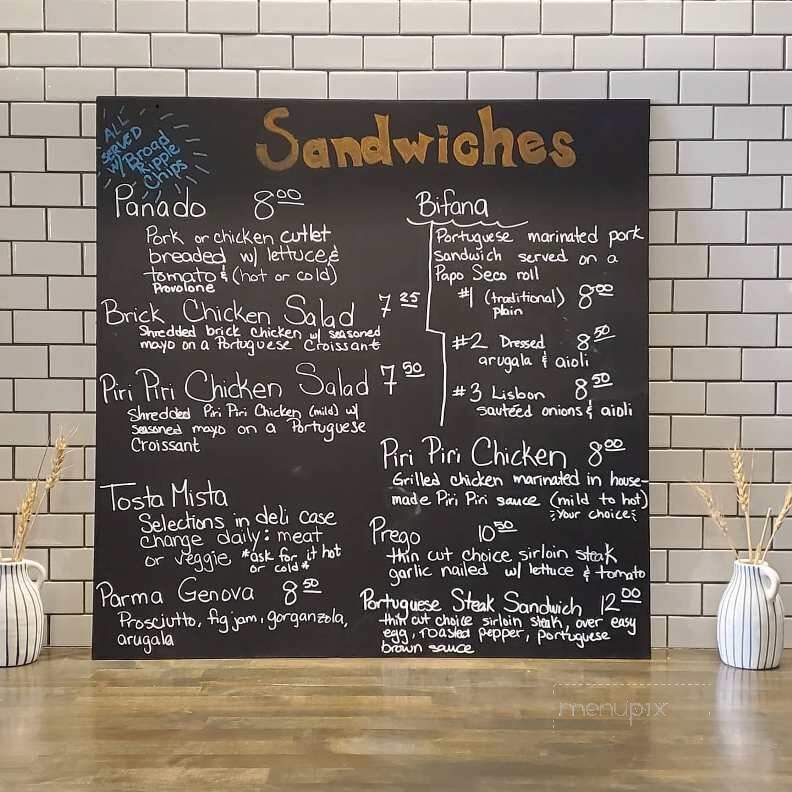 Sandwiches
ALL
SERVED
W/ Broad
Ripple
Chips
Panado 8.00
Pork or chicken cutlet
breaded w/ lettuce &
tomato & (hot or cold)
Provolone
Brick Chicken Salad 7.25
Shredded brick chicken w/ seasoned
mayo on a Portuguese Croissant
Piri Piri Chicken Salad 7.50
Shredded Piri Piri Chicken (mild) w/
seasoned mayo on a Portuguese
Croissant
Tosta Mista
Selections in deli case
change daily: meat
or veggie *ask for it hot
or cold*
Parma Genova 8.50
Prosciutto, fig jam, gorganzola,
arugala
Bifana
Portuguese marinated pork
sandwich served on a
Papo Seco roll
#1 (traditional) 8.00
plain
#2 Dressed 8.50
arugala & aioli
#3 Lisbon 8.50
sautéed onions & aioli
Piri Piri Chicken 8.00
Grilled chicken marinated in house-
made Piri Piri sauce (mild to hot)
your choice
Prego 10.50
thin cut choice sirloin steak
garlic nailed w/ lettuce & tomato
Portuguese Steak Sandwich 12.00
thin cut choice sirloin steak, over easy
egg, roasted pepper, portuguese
brown sauce
menupix